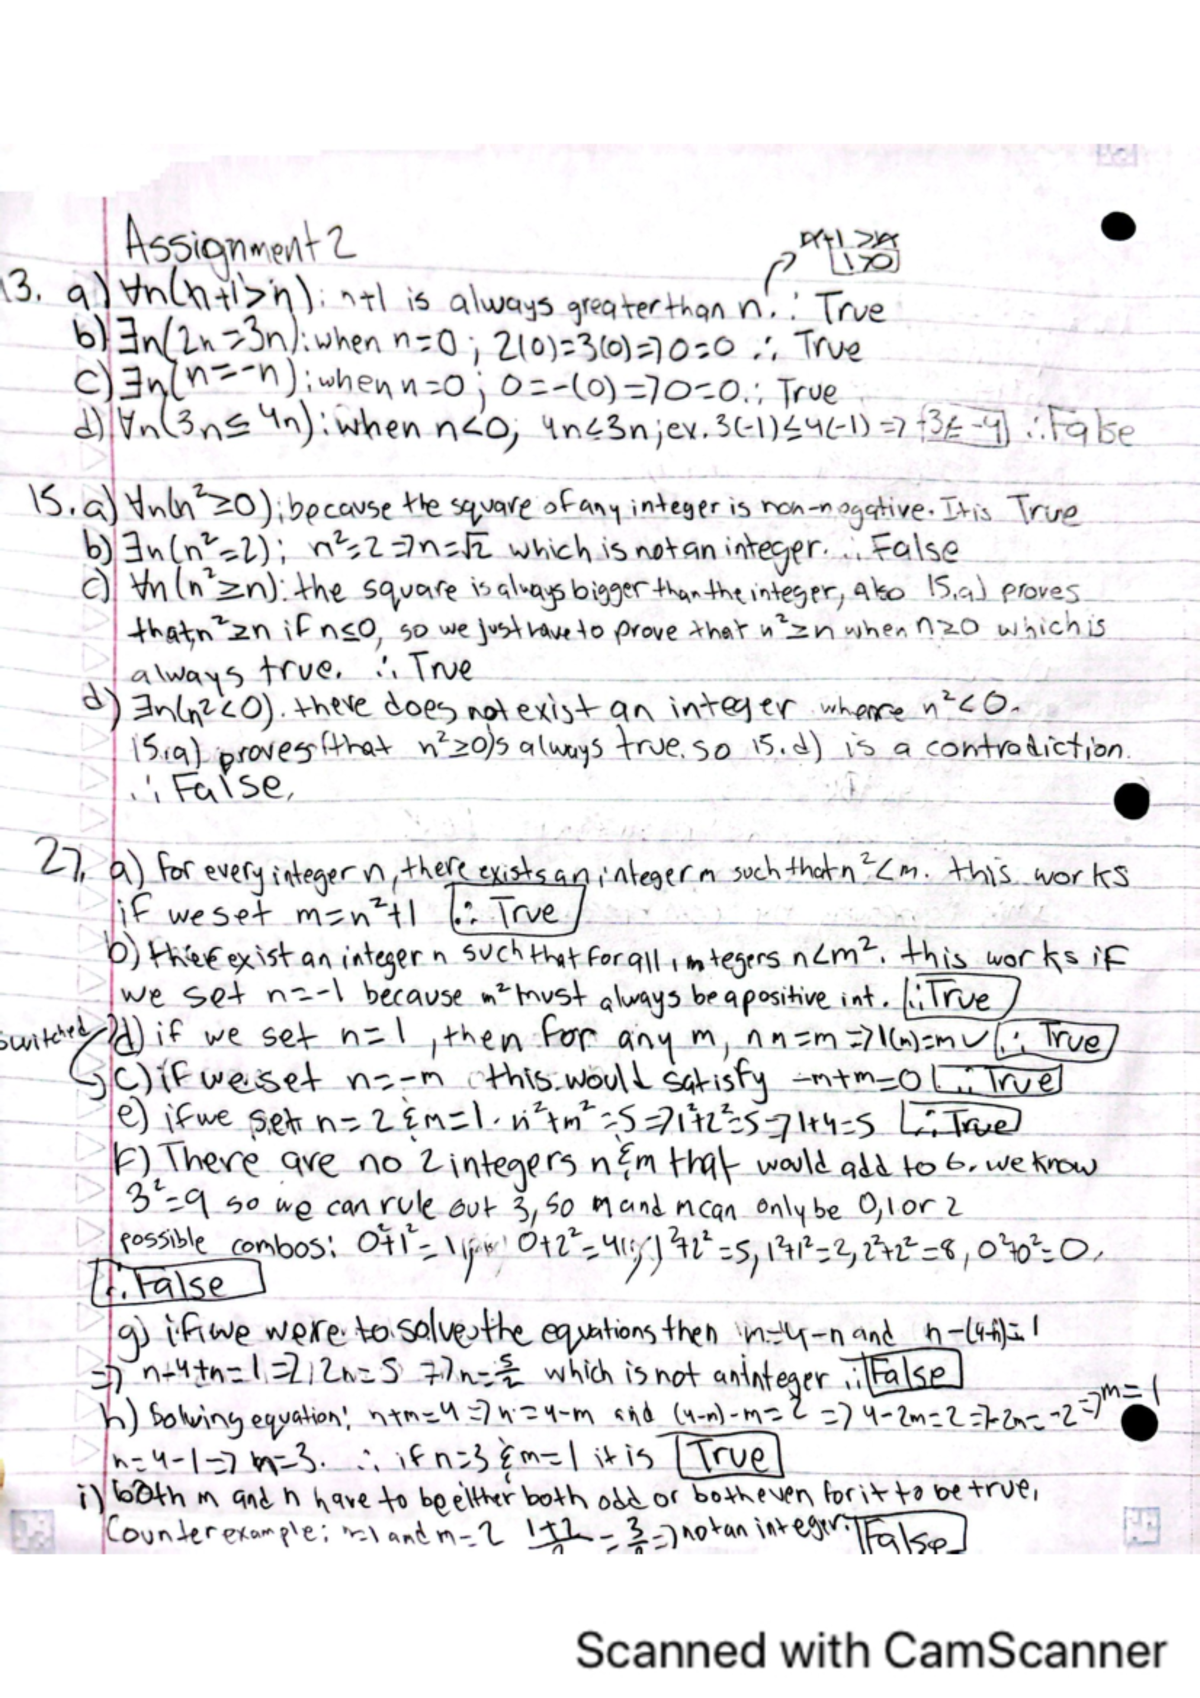 Assignment 2
n+1>n
1>0
13. a) ∀n(n+1>n): n+1 is always greater than n. ∴ True
b) ∃n(2n=3n): when n=0; 2(0)=3(0)=>0=0 ∴ True
c) ∃n(n=-n): when n=0; 0=-(0)=>0=0 ∴ True
d) ∀n(3n≤4n): when n<0; 4n<3n; ex. 3(-1)≤4(-1) => -3≰-4 ∴ False
15. a) ∀n(n²≥0); because the square of any integer is non-negative. It is True
b) ∃n(n²=2); n²=2=>n=√2 which is not an integer. ∴ False
c) ∀n(n²≥n): the square is always bigger than the integer, also 15.a) proves
that n²≥n if n≤0, so we just have to prove that n²≥n when n≥0 which is
always true. ∴ True
d) ∃n(n²<0). there does not exist an integer where n²<0.
15.a) proves that n²≥0 is always true. so 15.d) is a contradiction.
∴ False.
27. a) for every integer n, there exists an integer m such that n²<m. this works
if we set m=n²+1 ∴ True
b) there exist an integer n such that for all integers n<m². this works if
we set n=-1 because m² must always be a positive int. ∴ True
switched d) if we set n=1, then for any m, nm=m=>1(m)=m ✓ ∴ True
c) if we set n=-m this would satisfy -m+m=0 ∴ True
e) if we set n=2 & m=1. n²+m²=5=>1²+2²=5=>1+4=5 ∴ True
f) There are no 2 integers n & m that would add to 6. we know
3²=9 so we can rule out 3, so m and m can only be 0,1 or 2
possible combos: 0²+1²=1, 0+2²=4, 1²+2²=5, 1²+1²=2, 2²+2²=8, 0²+0²=0.
∴ False
g) if we were to solve the equations then m=4-n and n-(4-n)=1
=> n-4+n=1=>2n=5 =>n=5/2 which is not an integer ∴ False
h) Solving equation: n+m=4=>n=4-m and (4-m)-m=2 => 4-2m=2=>-2m=-2=>m=1
n=4-1=>n=3. ∴ if n=3 & m=1 it is True
i) both m and n have to be either both odd or both even for it to be true,
Counter example: n=1 and m=2 1+2/2 = 3/2 => not an integer ∴ False
Scanned with CamScanner